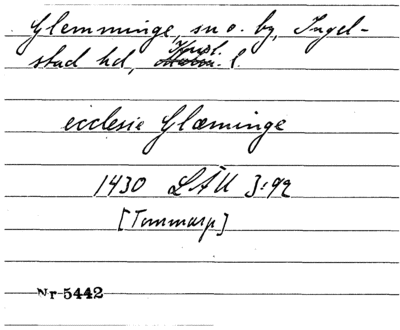 Glemminge, sn o. by, Ingel-
stad hd, Krist. l.
ecclesie Glæminge
1430 LÄU 3:92
[Tommarp]
Nr 5442